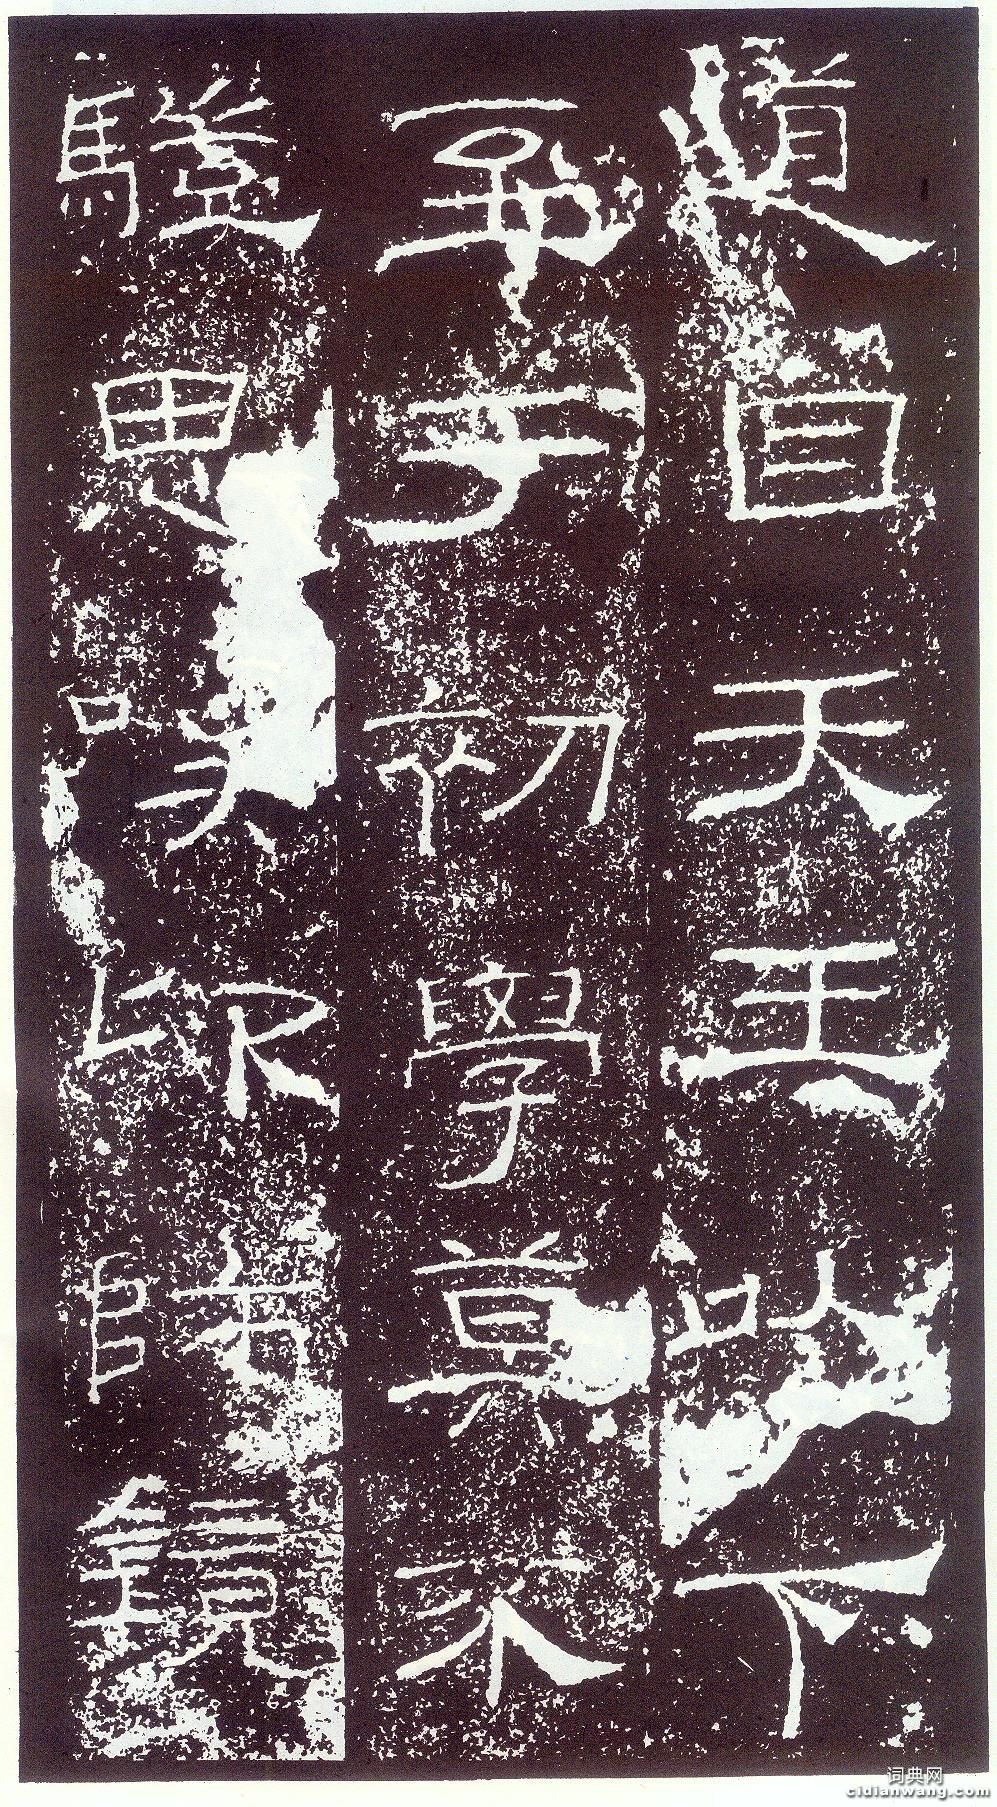 道自天王以下
至于初學莫不
䮴思嘆卬師鏡
词典网
cidianwang.com